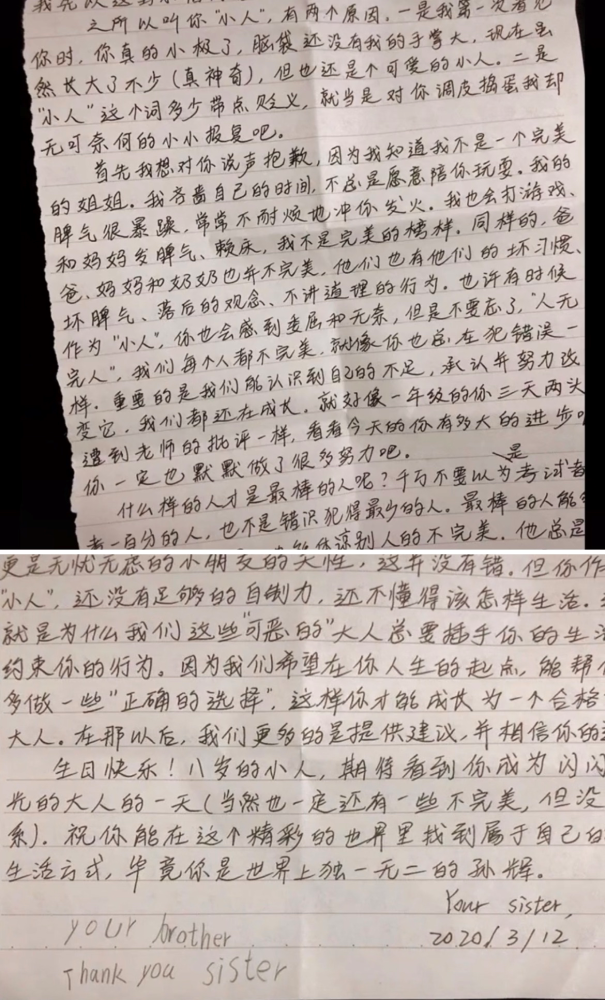 之所以叫你“小人”，有两个原因。一是我第一次看见
你时，你真的小极了，脑袋还没有我的手掌大，现在虽
然长大了不少（真神奇），但也还是个可爱的小人。二是
“小人”这个词多少带点贬义，就当是对你调皮捣蛋我却
无可奈何的小小报复吧。
首先我想对你说声抱歉，因为我知道我不是一个完美
的姐姐。我吝啬自己的时间，不总是愿意陪你玩耍。我的
脾气很暴躁，常常不耐烦地冲你发火。我也会打游戏、
和妈妈发脾气、赖床，我不是完美的榜样。同样的，爸
爸、妈妈和奶奶也并不完美，他们也有他们的坏习惯、
坏脾气、落后的观念、不讲道理的行为。也许有时候
作为“小人”，你也会感到委屈和无奈，但是不要忘了，“人无
完人”，我们每个人都不完美，就像你也总在犯错误一
样。重要的是我们能认识到自己的不足，承认并努力改
变它，我们都还在成长。就好像一年级的你三天两头
遭到老师的批评一样，看看今天的你有多大的进步
你一定也默默做了很多努力吧。
什么样的人才是最棒的人呢？千万不要以为是考试
考一百分的人，也不是错误犯得最少的人。最棒的人能
体谅别人的不完美。他总是
更是无忧无虑的小朋友的天性，这并没有错。但你作
“小人”，还没有足够的自制力，还不懂得该怎样生活。
就是为什么我们这些“可恶的”大人总要插手你的生
约束你的行为。因为我们希望在你人生的起点，能帮
多做一些“正确的选择”，这样你才能成长为一个合格
大人。在那以后，我们更多的是提供建议，并相信你的
生日快乐！八岁的小人，期待看到你成为闪闪
光的大人的一天（当然也一定还有一些不完美，但没
系）。祝你能在这个精彩的世界里找到属于自己的
生活方式，毕竟你是世界上独一无二的孙辉。
Your sister,
2020/3/12
your brother
Thank you sister